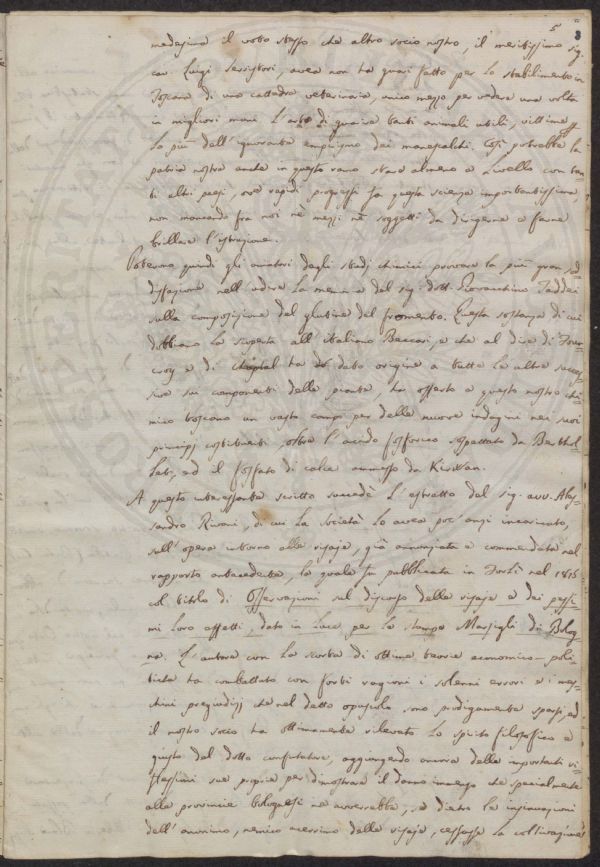 5
3
medesimo il voto stesso che altro socio nostro, il meritissimo sig.
cav. Luigi Serristori, avea non ha guari fatto per lo stabilimento in
Toscana di una cattedra veterinaria, unico mezzo per vedere una volta
in migliori mani l'arte di guarire tanti animali utili, vittime
lo più dell'ignorante empirismo dei manescalchi. Così potrebbe la
patria nostra anche in questo ramo stare almeno a livello con tan-
ti altri paesi, ove rapidi progressi fa questa scienza importantissima
non mancando fra noi nè mezzi nè soggetti da dirigerne e farne
brillare l'istruzione.
Poterono quindi gli amatori degli studj chimici provare la più gran sod-
disfazione nell'udire la memoria del sig. dott. Gioacchino Taddei
sulla composizione del glutine del fromento. Questa sostanza di cui
dobbiamo la scoperta all'italiano Beccari, e che al dire di Four-
croy e di Chaptal ha dato origine a tutte le altre succes-
sive sui componenti delle piante, ha offerto a questo nostro chi-
mico toscano un vasto campo per delle nuove indagini nei suoi
principj costituenti, oltre l'acido fosforico sospettato da Berthol-
let, ed il fosfato di calce ammesso da Kirwan.
A questo interessante scritto succedè l'estratto del sig. avv. Ales-
sandro Rivani, di cui la Società lo avea poc'anzi incaricato,
sull'opera intorno alle risaje, già annunziata e commendata nel
rapporto antecedente, la quale fu pubblicata in Forlì nel 1818
col titolo di Osservazioni sul discorso delle risaje e dei pessi-
mi loro effetti, dato in luce per le stampe Marsigli di Bolog-
na. L'autore con la scorta di ottime teorie economico-poli-
tiche ha combattuto con forti ragioni i solenni errori e i mes-
chini pregiudizj che nel detto opuscolo sono prodigamente sparsi, ed
il nostro socio ha ottimamente rilevato lo spirito filosofico e
giusto del dotto confutatore, aggiungendo ancora delle importanti ri-
flessioni sue proprie per dimostrare il danno immenso che specialmente
alle provincie bolognesi ne avverrebbe, se dietro le insinuazioni
dell'anonimo, nemico acerrimo delle risaje, cessasse la coltivazione